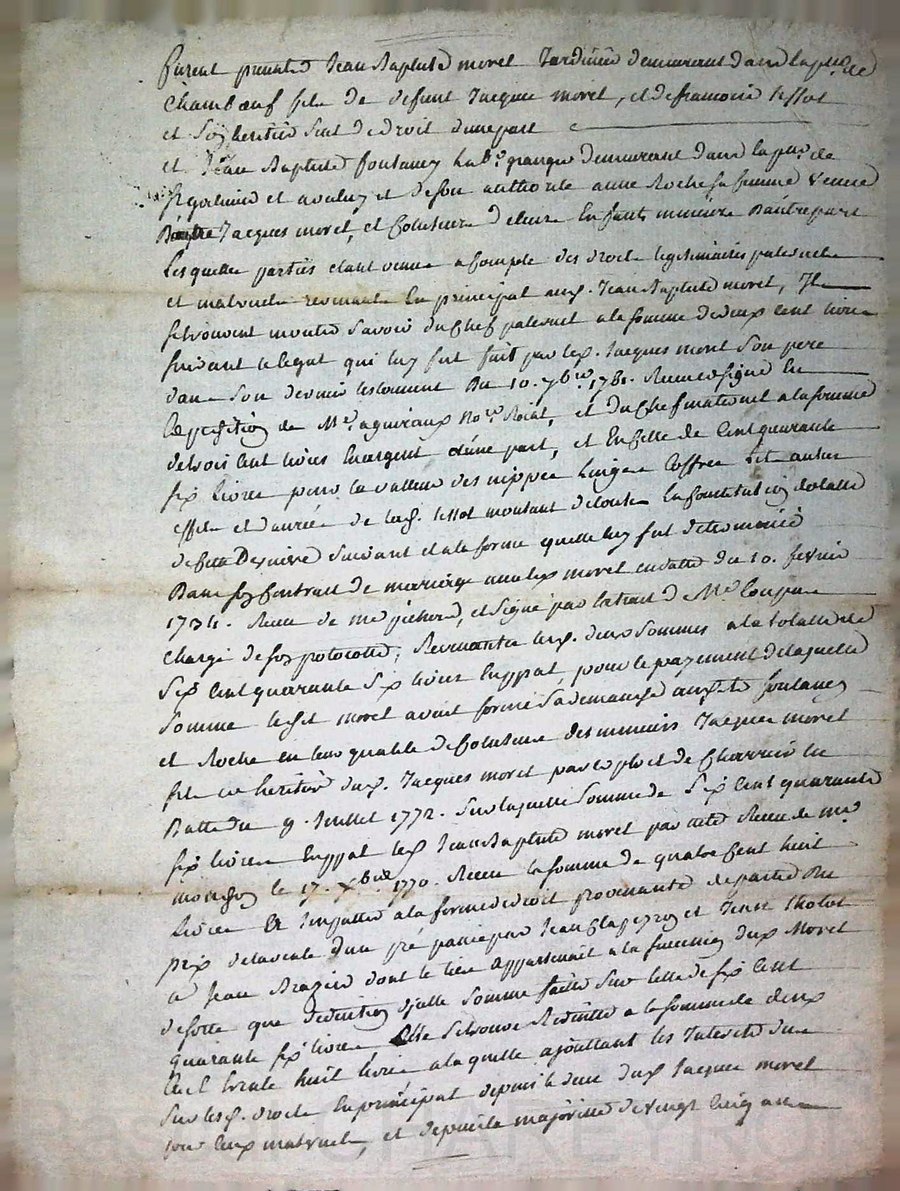 furent presents Jean Baptiste morel Jardinier demeurant dans la psse de
Chambœuf fils de defunt Jacques morel, et de francoise tissot
et son heritier sent de droit d'une part
et Jean Baptiste fontaney hab. granger demeurant dans la psse de
St galmier et avec luy et de son authorité anne Roche sa femme veuve
Jacques morel, et tutrice de leurs Enfants mineurs D'autre part
Lesquelles parties étant venues a Compte des droits legitimaires paternels
et maternels revenants En principal aud. Jean Baptiste morel, Ils
se trouvent monter savoir du Chef paternel a la somme de deux Cent livres
suivant le legat qui luy fut fait par led. Jacques morel son pere
dans son dernier testament Du 10. 7bre 1751. Receu et signé En
Expedition de Me aguiraux Nore Roial, et du Chef maternel a la somme
de trois Cent livres En argent d'une part, et En Celle de Cent quarante
six livres pour la valleur des nippes Linges Coffres et autres
effets et denrées de lad. tissot montant de toute la Constitution dotalle
de cette Derniere suivant et a la forme quelle luy fut determinée
Dans son Contrat de mariage avec led morel en datte du 10. fevrier
1734. Receu de me pichon, et signé par Extrait de Me Coupat
Chargé de son protocolle; Revenantes lesd. deux sommes a la totalle de
Six Cent quarante Six livres En ppal, pour le payement de laquelle
Somme led. morel avait formé sa demande auxdts fontaney
et Roche en leur qualité de tuteurs des mineurs Jacques morel
fils et heritier dud. Jacques morel par exploit de Charrier En
Datte du 9. Juillet 1772. Sur laquelle Somme de Six Cent quarante
six livres En ppal led Jean Baptiste morel par acte Receu de me
le 17. Xbre 1770. Receu la somme de quatre Cent huit
Livres Et Imputées a la forme de droit provenante de partie Du
prix de la vente d'un pré passée par Jean Clapeyron et
a Jean Bragard dont le bien appartenait a la succession dud Morel
de sorte que deduction de laditte somme faitte sur celle de six Cent
quarante six livres Elle se trouve Reduitte a la somme de deux
Cent trente huit livres a laquelle ajouttant les Interets dus
Sur lesd. droits En principal depuis le deces dud Jacques morel
pour Ceux maternels, et depuis la majorité de vingt Cinq ans